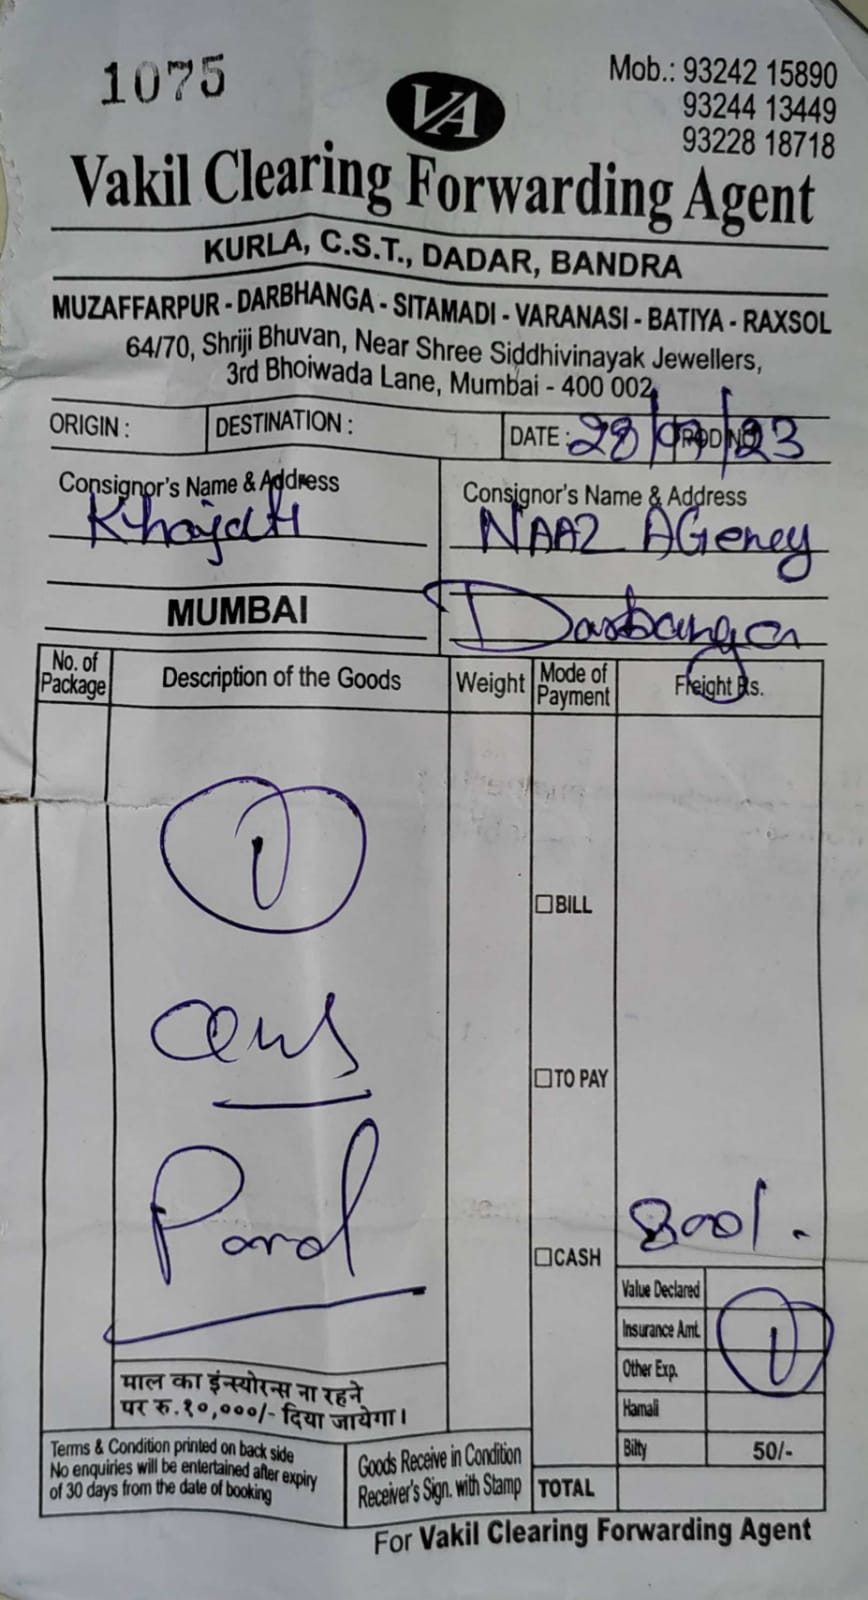 1075
VA
Mob.: 93242 15890
93244 13449
93228 18718
Vakil Clearing Forwarding Agent
KURLA, C.S.T., DADAR, BANDRA
MUZAFFARPUR - DARBHANGA - SITAMADI - VARANASI - BATIYA - RAXSOL
64/70, Shriji Bhuvan, Near Shree Siddhivinayak Jewellers,
3rd Bhoiwada Lane, Mumbai - 400 002.
ORIGIN : DESTINATION : DATE : 28/07/23
Consignor's Name & Address
Consignor's Name & Address
NAAZ AGency
MUMBAI
Darbanga
No. of Package
Description of the Goods
Weight
Mode of Payment
Freight Rs.
1
BILL
TO PAY
Parcel
CASH
800/-
Value Declared
Insurance Amt.
1
Other Exp.
Hamali
Bilty 50/-
TOTAL
माल का इंन्स्योरन्स ना रहने
पर रु.१०,०००/- दिया जायेगा।
Terms & Condition printed on back side
No enquiries will be entertained after expiry
of 30 days from the date of booking
Goods Receive in Condition
Receiver's Sign. with Stamp
For Vakil Clearing Forwarding Agent